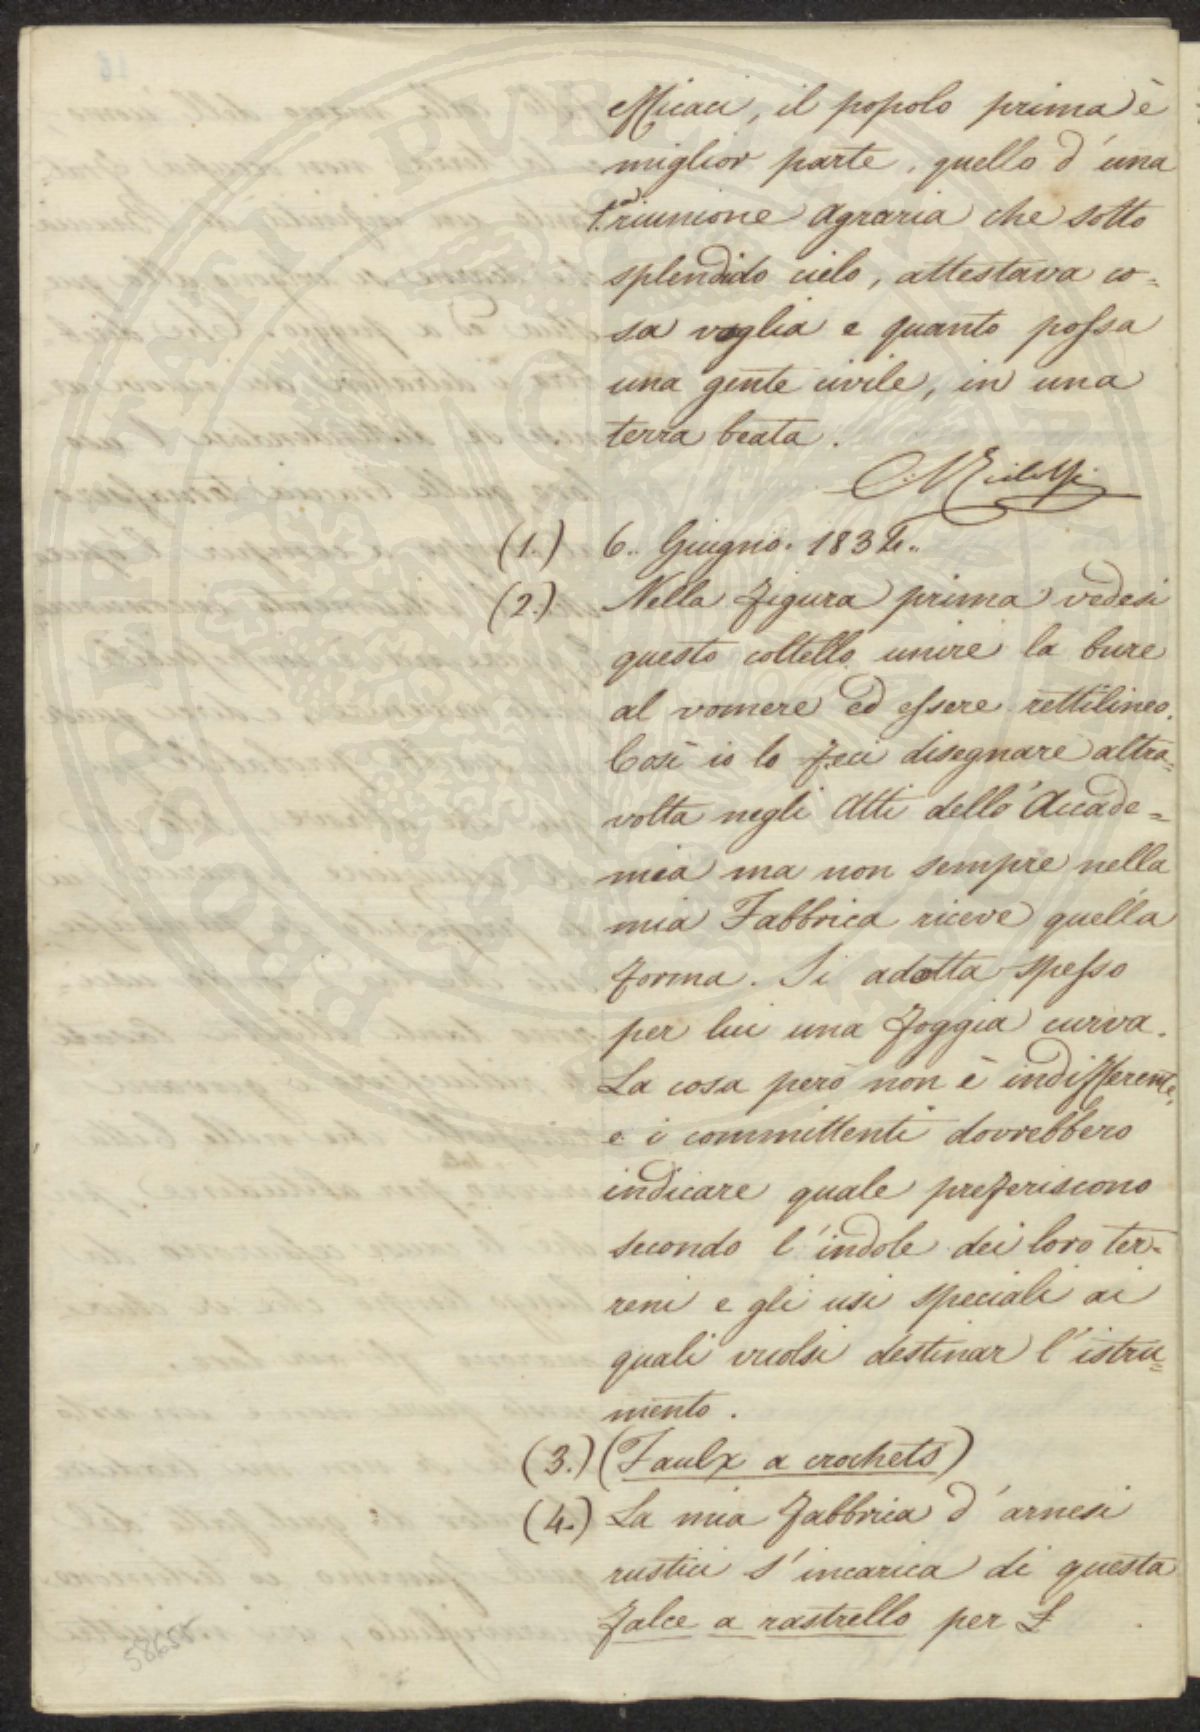 efficaci, il popolo prima è
miglior parte, quello d'una
1.a riunione agraria che sotto
splendido cielo, attestava co=
sa voglia e quanto possa
una gente civile, in una
terra beata.
C. Ridolfi
(1.) 6.. Giugno. 1834..
(2.) Nella figura prima vedesi
questo coltello unire la bure
al vomere ed essere rettilineo.
Così io lo feci disegnare altra=
volta negli Atti dell'Accade=
mia ma non sempre nella
mia Fabbrica riceve quella
forma. Si adotta spesso
per lui una foggia curva.
La cosa però non è indifferente,
e i committenti dovrebbero
indicare quale preferiscono
secondo l'indole dei loro ter=
reni e gli usi speciali ai
quali vuolsi destinar l'istru=
mento.
(3.) (Faulx a crochets)
(4.) La mia fabbrica d'arnesi
rustici s'incarica di questa
falce a rastrello per £